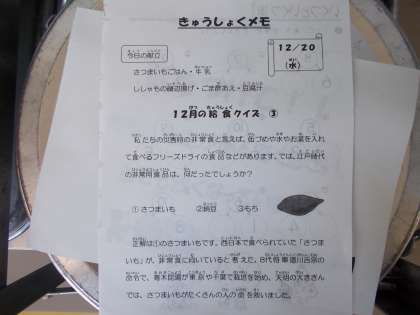 きゅうしょくメモ
今日の献立
12/20
(水)
さつまいもごはん・牛乳
ししゃもの磯辺揚げ・ごま酢あえ・豆腐汁
12月の給食クイズ ③
私たちの災害時の非常食と言えば、缶づめや水やお湯を入れ
て食べるフリーズドライの食品などがあります。では、江戸時代
の非常用食品は、何だったでしょうか?
①さつまいも ②納豆 ③もち
正解は①のさつまいもです。西日本で食べられていた「さつま
いも」が、非常食に向いていると考えた、8代将軍徳川吉宗の
命令で、青木昆陽が関東や千葉で栽培を始め、天明の大ききん
では、さつまいもがたくさんの人の命を救いました。